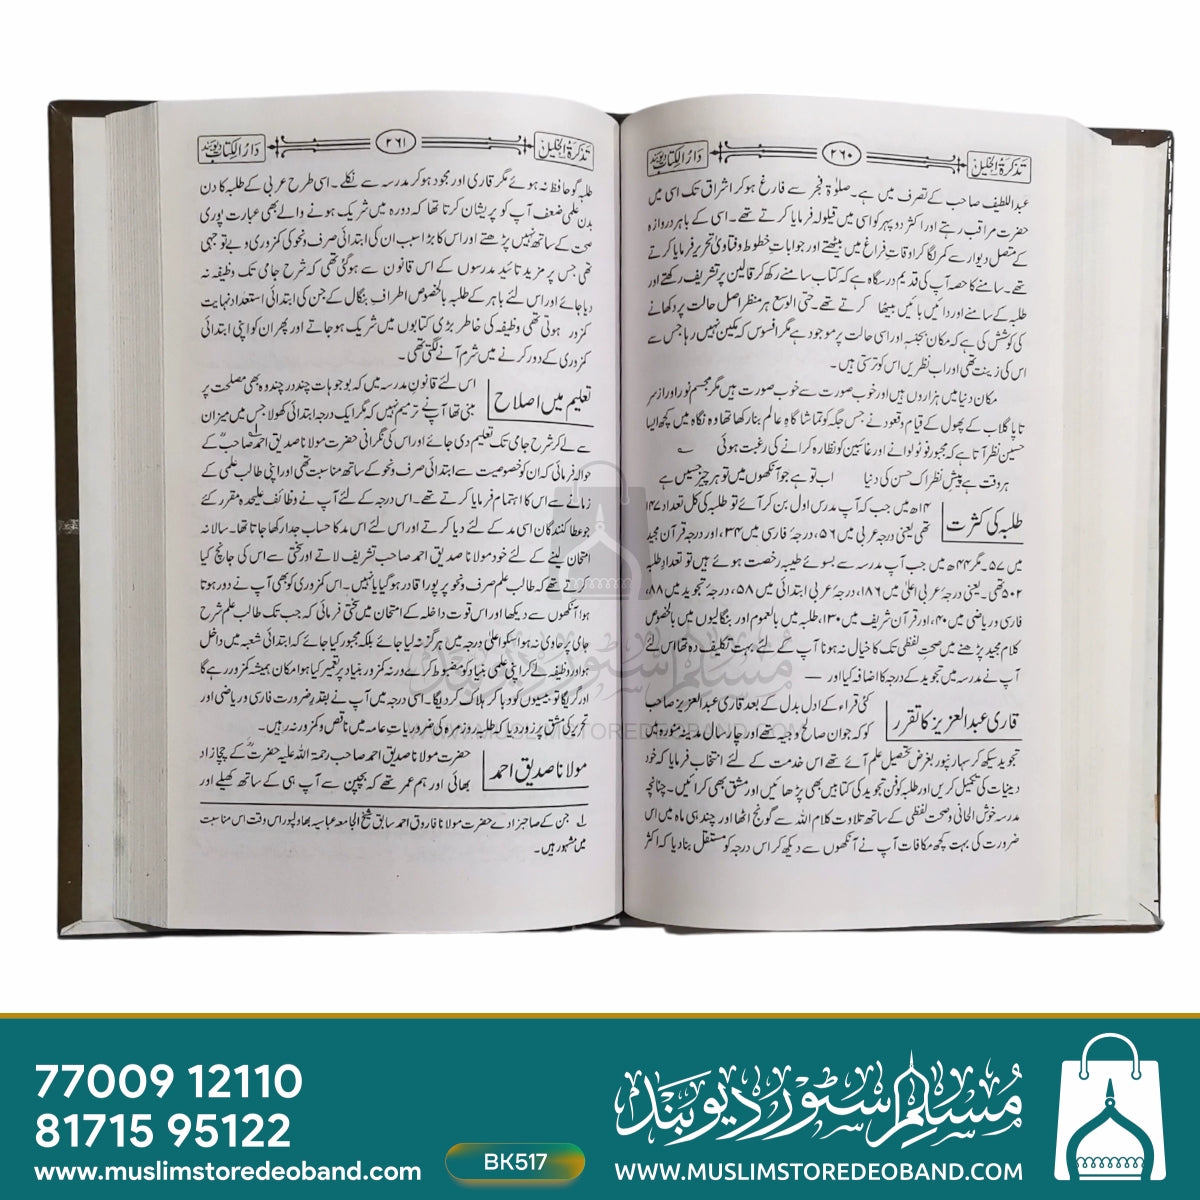 تذکرۃ الخلیل ۳۶۰ دارالکتاب دیوبند
عبداللطیف صاحب کے تصرف میں ہے۔ صلوٰۃ فجر سے فارغ ہو کر اشراق تک اسی میں
حضرت مراقب رہتے اور اکثر دوپہر کو اسی میں قیلولہ فرمایا کرتے تھے۔ اسی کے باہر دروازہ
کے متصل دیوار سے کمر لگا کر اوقاتِ فراغ میں بیٹھتے اور جوابات خطوط و فتاویٰ تحریر فرمایا کرتے
تھے۔ سامنے کا حصہ آپ کی قدیم درسگاہ ہے کہ کتاب سامنے رکھ کر قالین پر تشریف رکھتے اور
طلبہ کے سامنے اور دائیں بائیں بیٹھا کرتے تھے۔ حتی الوسع ہر منظر اصل حالت پر دکھانے
کی کوشش کی ہے کہ مکان بجنسہ اور اسی حالت پر موجود ہے مگر افسوس کہ مکین نہیں رہا جس سے
اس کی زینت تھی اور اب نظریں اس کو ترستی ہیں۔
مکان دنیا میں ہزاروں ہیں اور خوب صورت سے خوب صورت ہیں مگر مجسم نور اور از سر
تا پا گلاب کے پھول کے قیام و قعود نے جس جگہ کو تماشا گاہِ عالم بنا رکھا تھا وہ نگاہ میں کچھ ایسا
حسین نظر آتا ہے کہ مجبور فوٹو لوانے اور غائبین کو نظارہ کرانے کی رغبت ہوئی
ہر وقت ہے پیشِ نظر اک حسن کی دنیا اب تو ہے جو آنکھوں میں تو ہر چیز حسیں ہے
طلبہ کی کثرت
۱۴ھ میں جب کہ آپ مدرس اول بن کر آئے تو طلبہ کی کل تعداد ۱۴۷
تھی یعنی درجہ عربی میں ۵۶، درجۂ فارسی میں ۳۴، اور درجہ قرآن مجید
میں ۵۷۔ مگر ۴۴ھ میں جب آپ مدرسہ سے بسوئے طیبہ رخصت ہوئے ہیں تو تعداد طلبہ
۵۰۲ تھی۔ یعنی درجۂ عربی اعلیٰ میں ۱۸۶، درجۂ عربی ابتدائی میں ۵۸، درجۂ تجوید میں ۸۸،
فارسی و ریاضی میں ۴۰، اور قرآن شریف میں ۱۳۰، طلبہ میں بالعموم اور بنگالیوں میں بالخصوص
کلام مجید پڑھنے میں صحتِ لفظی تک کا خیال نہ ہونا آپ کے لئے بہت تکلیف دہ تھا اس لئے
آپ نے مدرسہ میں تجوید کے درجہ کا اضافہ کیا اور —
قاری عبدالعزیز کا تقرر
کئی قراء کے ادل بدل کے بعد قاری عبدالعزیز صاحب
کو کہ جوان صالح وجیہ تھے اور چار سال مدینہ منورہ میں
تجوید سیکھ کر سہارنپور بغرض تحصیل علم آئے تھے اس خدمت کے لئے انتخاب فرمایا کہ خود
دینیات کی تکمیل کریں اور طلبہ کو فن تجوید کی کتابیں بھی پڑھائیں اور مشق بھی کرائیں۔ چنانچہ
مدرسہ خوش الحانی و صحت لفظی کے ساتھ تلاوت کلام اللہ سے گونج اٹھا اور چند ہی ماہ میں اس
ضرورت کی بہت کچھ مکافات آپ نے آنکھوں سے دیکھ کر اس درجہ کو مستقل بنا دیا کہ اکثر
تذکرۃ الخلیل ۳۶۱ دارالکتاب دیوبند
طلبہ گو حافظ نہ ہوئے مگر قاری اور مجود ہو کر مدرسہ سے نکلے۔ اسی طرح عربی کے طلبہ کا دن
بدن علمی ضعف آپ کو پریشان کرتا تھا کہ دورہ میں شریک ہونے والے بھی عبارت پوری
صحت کے ساتھ نہیں پڑھتے اور اس کا بڑا سبب ان کی ابتدائی صرف و نحو کی کمزوری و بے توجہی
تھی جس پر مزید تائید مدرسوں کے اس قانون سے ہوگئی تھی کہ شرح جامی تک وظیفہ نہ
دیا جائے اور اس لئے باہر کے طلبہ بالخصوص اطراف بنگال کے جن کی ابتدائی استعداد نہایت
کمزور ہوتی تھی وظیفہ کی خاطر بڑی کتابوں میں شریک ہو جاتے اور پھر ان کو اپنی ابتدائی
کمزوری کے دور کرنے میں شرم آنے لگتی تھی۔
تعلیم میں اصلاح
اس لئے قانون مدرسہ میں کہ بوجوہات چند در چند وہ بھی مصلحت پر
مبنی تھا آپ نے ترمیم نہیں کہ مگر ایک درجہ ابتدائی کھولا جس میں میزان
سے لے کر شرح جامی تک تعلیم دی جائے اور اس کی نگرانی حضرت مولانا صدیق احمد صاحبؒ کے
حوالہ فرمائی کہ ان کو خصوصیت سے ابتدائی صرف و نحو کے ساتھ مناسبت تھی اور اپنی طالب علمی کے
زمانے سے اس کا اہتمام فرمایا کرتے تھے۔ اس درجہ کے لئے آپ نے وظائف علیحدہ مقرر کئے
جو عطا کنندگان اسی مد کے لئے دیا کرتے اور اس لئے اس مد کا حساب جدا رکھا جاتا تھا۔ سالانہ
امتحان لینے کے لئے خود مولانا صدیق احمد صاحب تشریف لاتے اور سختی سے اس کی جانچ کیا
کرتے تھے کہ طالب علم صرف و نحو پر پورا قادر ہو گیا یا نہیں۔ اس کمزوری کو بھی آپ نے دور ہوتا
ہوا آنکھوں سے دیکھا اور اس قوت داخلہ کے امتحان میں سختی فرمائی کہ جب تک طالب علم شرح
جامی پر حاوی نہ ہو اسکو اعلیٰ درجہ میں ہرگز نہ لیا جائے بلکہ مجبور کیا جائے کہ ابتدائی شعبہ میں داخل
ہو اور وظیفہ لے کر اپنی علمی بنیاد کو مضبوط کرے ورنہ کمزور بنیاد پر تعمیر کیا ہوا مکان ہمیشہ کمزور رہے گا
اور گریگا تو بیسیوں کو دبا کر ہلاک کر دیگا۔ اسی درجہ میں آپ نے بقدر ضرورت فارسی و ریاضی اور
تحریر کی مشق پر زور دیا کہ طلبہ روزمرہ کی ضروریات عامہ میں ناقص و کمزور نہ رہیں۔
مولانا صدیق احمد
حضرت مولانا صدیق احمد صاحب رحمۃ اللہ علیہ حضرتؒ کے چچا زاد
بھائی اور ہم عمر تھے کہ بچپن سے آپ ہی کے ساتھ کھیلے اور
۱ جن کے صاحبزادے حضرت مولانا فاروق احمد سابق شیخ الجامعہ عباسیہ بھاولپور اس وقت اس مناسبت
میں مشہور ہیں۔
مسلم سٹور دیوبند
WWW.MUSLIMSTOREDEOBAND.COM
77009 12110
81715 95122
www.muslimstoredeoband.com
BK517
مسلم سٹور دیوبند
WWW.MUSLIMSTOREDEOBAND.COM